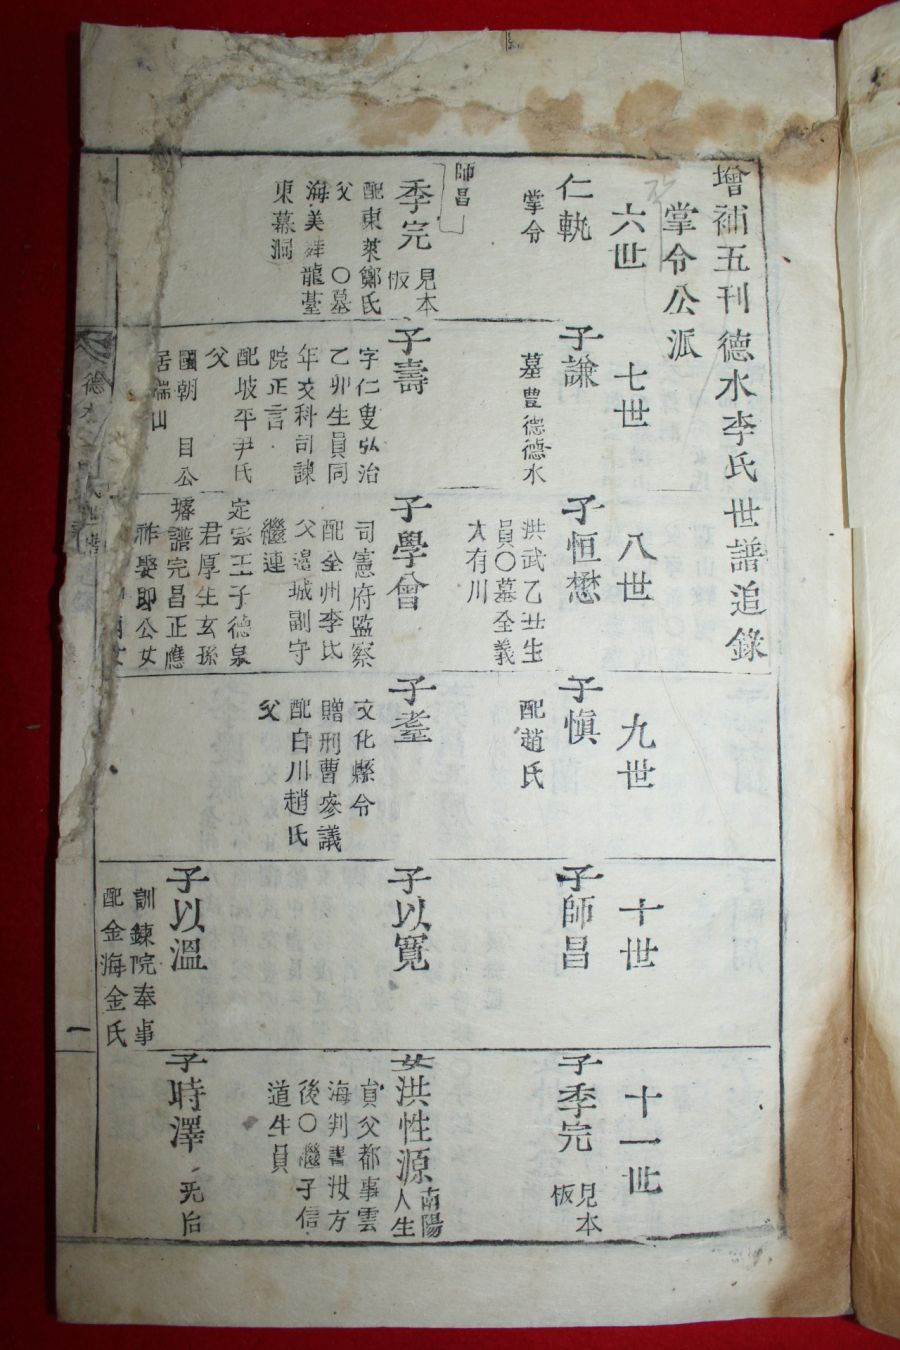 增補五刊德水李氏世譜追錄
掌令公派
六世
七世
八世
九世
十世
十一世
仁軌
掌令
師昌
季完
見本
板
配東萊鄭氏
父 〇墓
海美舞龍臺
東幕洞
子謙
墓豊德德水
子壽
字仁叟弘治
乙卯生員同
年文科司諫
院正言
配坡平尹氏
父
國朝 目公
居端山
子恒懋
洪武乙丑生
員〇墓全義
大有川
子學曾
司憲府監察
配全州李氏
父邊城副守
繼連
定宗王子德泉
君厚生玄孫
璿譜完昌正應
祚娶即公女
子愼
配趙氏
子耋
文化縣令
贈刑曹參議
配白川趙氏
父
子師昌
子以寬
子以溫
訓鍊院奉事
配金海金氏
子季完
見本
板
女洪性源
南陽
人生
貟父都事雲
海判書汝方
後〇繼子信
道生員
子時澤
无后
德水
一